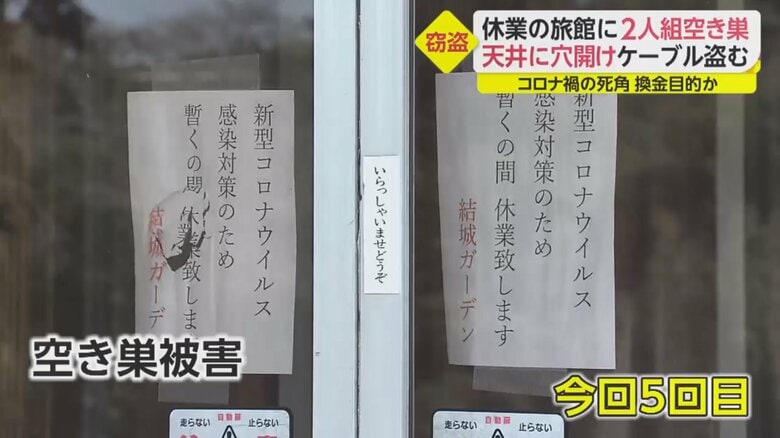 窃盗
休業の旅館に2人組空き巣
天井に穴開けケーブル盗む
コロナ禍の死角 換金目的か
新型コロナウイルス
感染対策のため
暫くの間 休業致します
結城ガーデン
いらっしゃいませどうぞ
新型コロナウイルス
感染対策のため
暫くの 休業致しま
結城ガーデ
空き巣被害
今回5回目
走らない 自動扉 止らない
走らない 自動扉 止らない